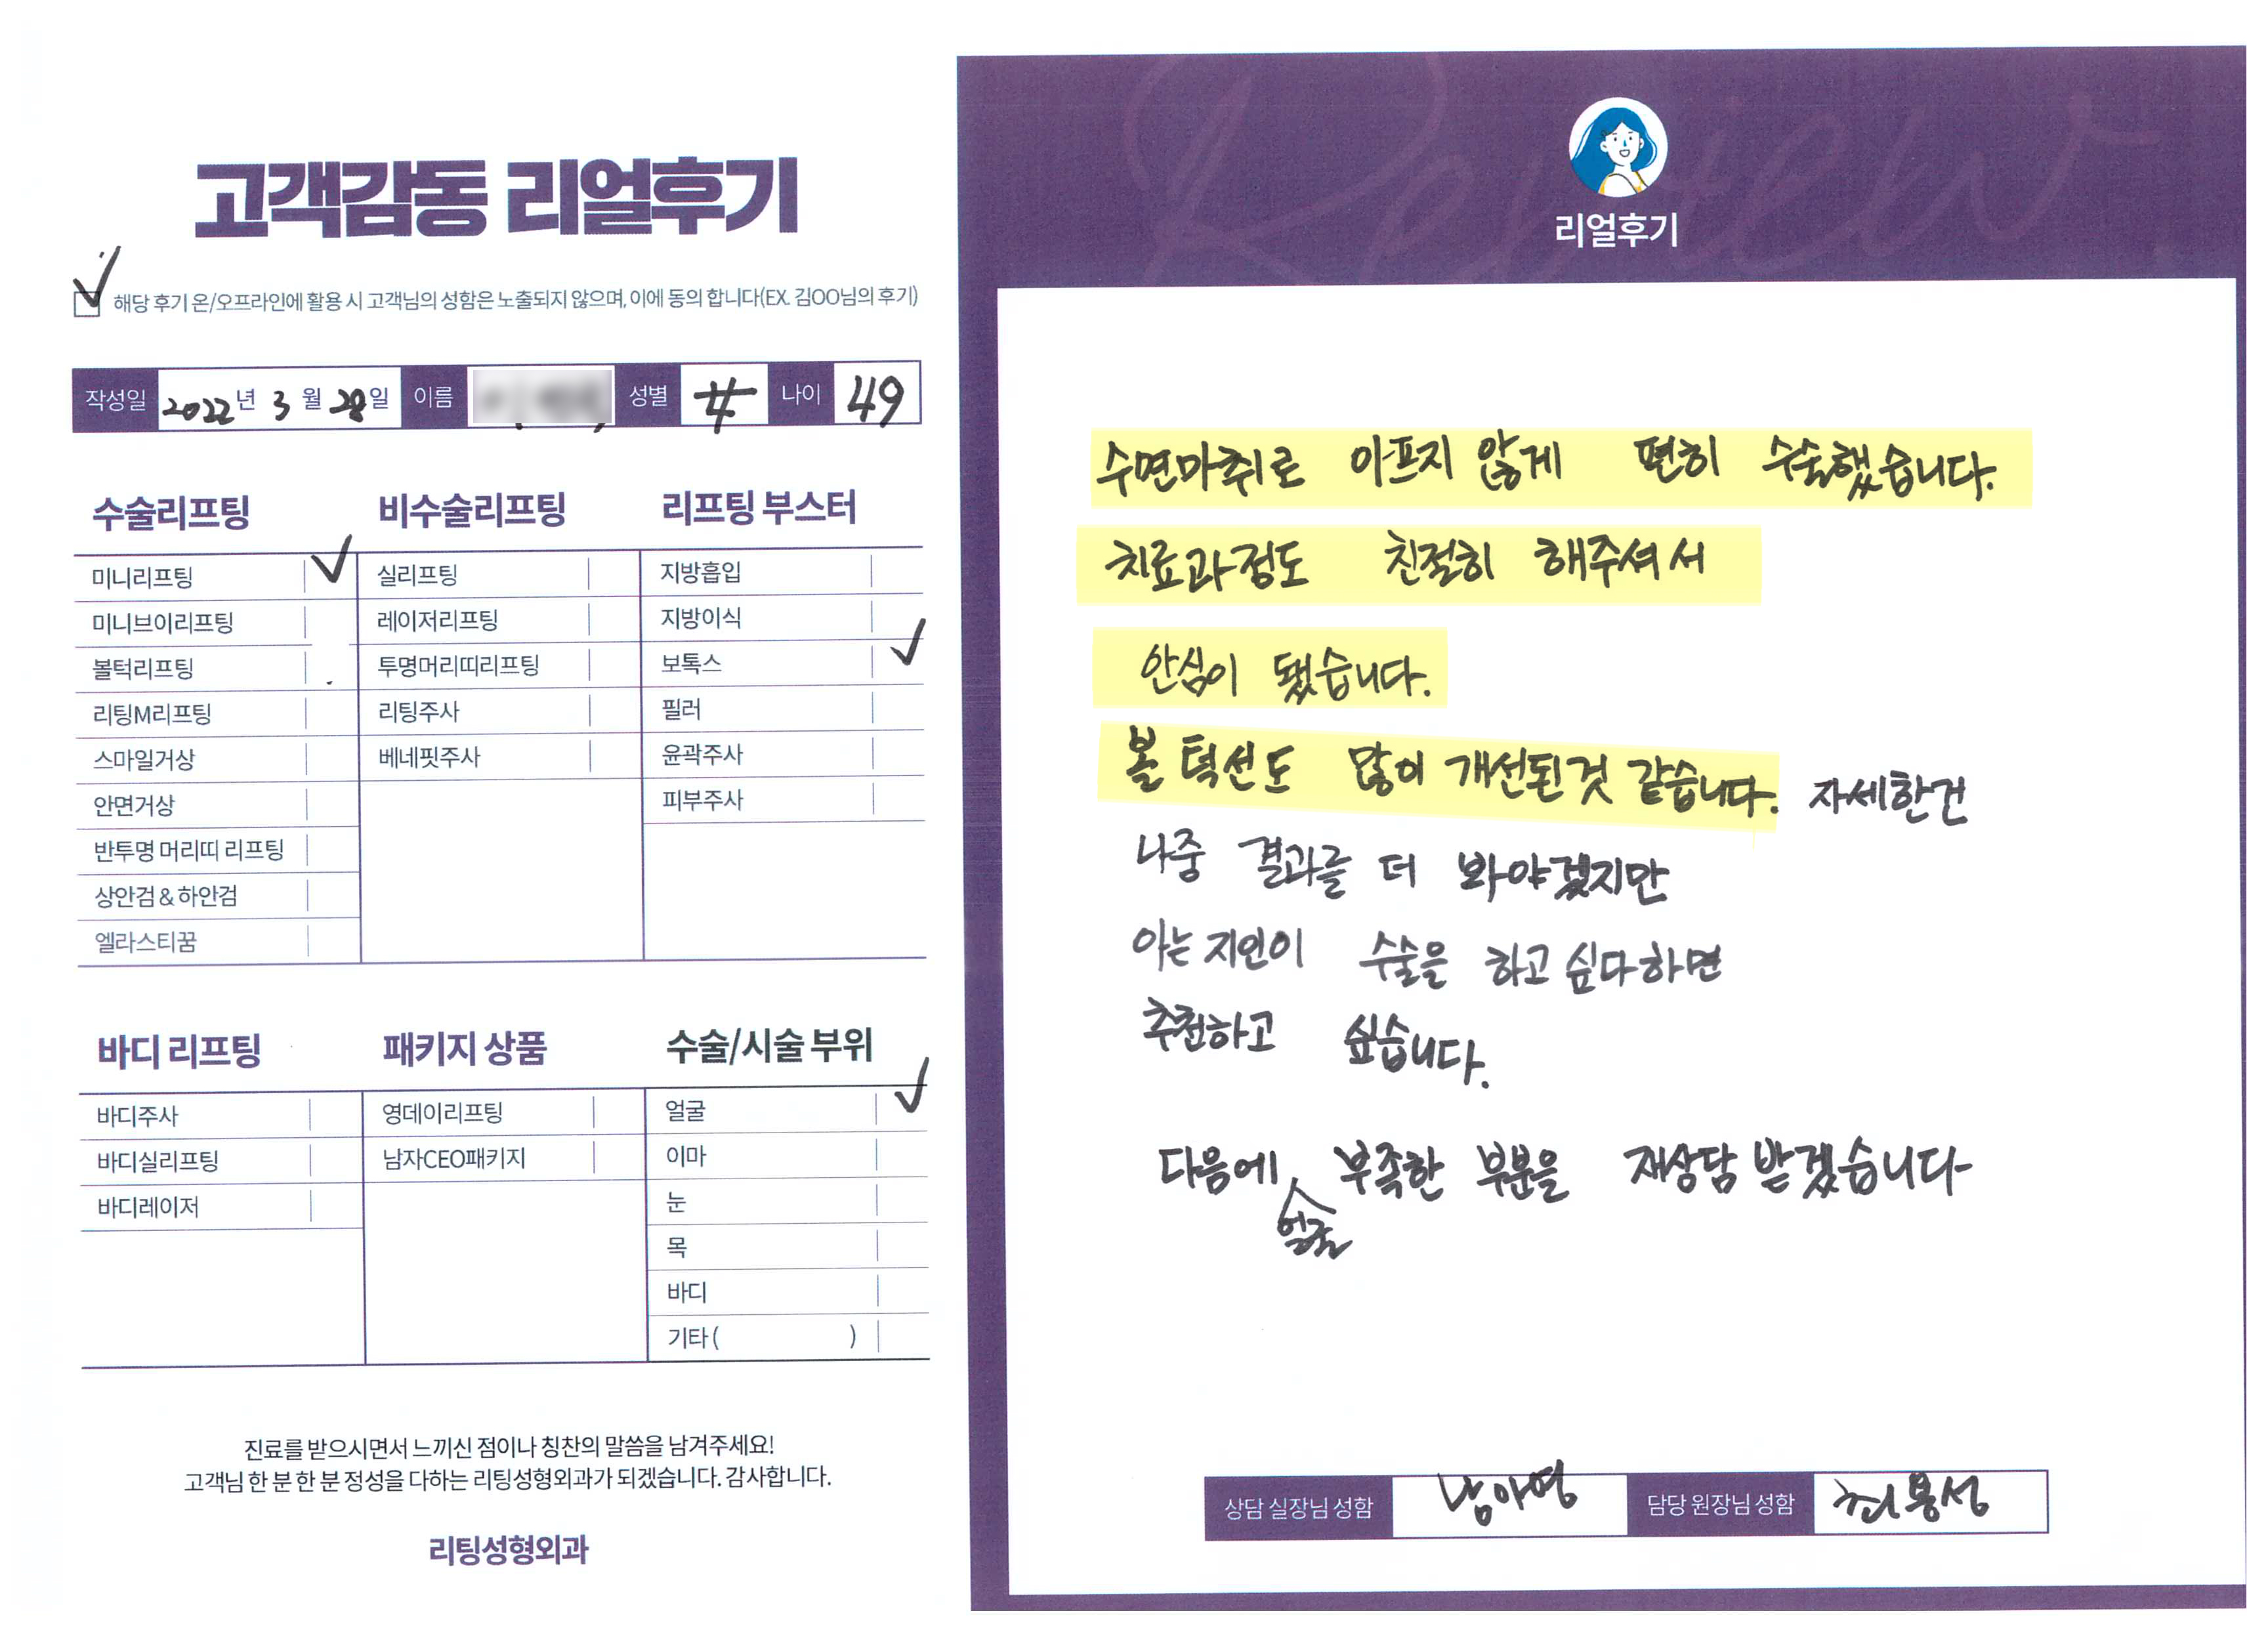 고객감동 리얼후기
해당 후기 온/오프라인에 활용 시 고객님의 성함은 노출되지 않으며, 이에 동의 합니다(EX. 김OO님의 후기)
작성일 2022년 3월 28일 이름 성별 나이 49
수술리프팅
미니리프팅
미니브이리프팅
볼턱리프팅
리팅M리프팅
스마일거상
안면거상
반투명 머리띠 리프팅
상안검&하안검
엘라스티꿈
비수술리프팅
실리프팅
레이저리프팅
투명머리띠리프팅
리팅주사
베네핏주사
리프팅 부스터
지방흡입
지방이식
보톡스
필러
윤곽주사
피부주사
바디 리프팅
바디주사
바디실리프팅
바디레이저
패키지 상품
영데이리프팅
남자CEO패키지
수술/시술 부위
얼굴
이마
눈
목
바디
기타( )
진료를 받으시면서 느끼신 점이나 칭찬의 말씀을 남겨주세요!
고객님 한 분 한 분 정성을 다하는 리팅성형외과가 되겠습니다. 감사합니다.
리팅성형외과
Review
리얼후기
수면마취로 아프지 않게 편히 수술했습니다.
치료과정도 친절히 해주셔서
안심이 됐습니다.
볼 턱선도 많이 개선된것 같습니다. 자세한건
나중 결과를 더 봐야겠지만
아는 지인이 수술을 하고 싶다하면
추천하고 싶습니다.
다음에 얼굴 부족한 부분을 재상담 받겠습니다
상담 실장님 성함 남아영 담당 원장님 성함